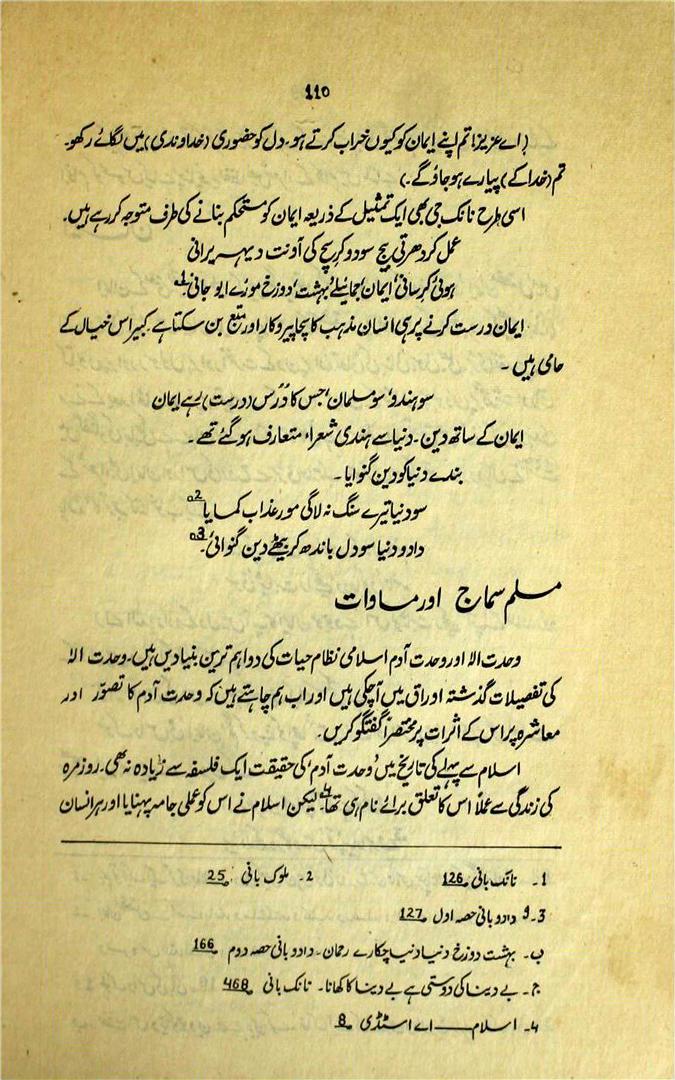 110
(اے عزیز! تم اپنے ایمان کو کیوں خراب کرتے ہو۔ دل کو حضوری (خداوندی) میں لگائے رکھو۔
تم (خدا کے) پیارے ہو جاؤ گے۔)
اسی طرح نانک جی بھی ایک تمثیل کے ذریعہ ایمان کو مستحکم بنانے کی طرف متوجہ کر رہے ہیں۔
عمل کر دھرتی بیج سودو کر سچ کی آونت دیہہ پرانی
ہوئی کرسانی، ایمان، جمائیلے، بہشت، دوزخ مورے ایو جانی۔1
ایمان درست کرنے پر ہی انسان مذہب کا سچا پیروکار اور متبع بن سکتا ہے کبیر اس خیال کے
حامی ہیں۔
سو ہندو، سو مسلمان، جس کا دُرس (درست) رہے ایمان
ایمان کے ساتھ دین۔ دنیا سے ہندی شعراء متعارف ہو گئے تھے۔
بندے دنیا کو دین گنوایا۔
سو دنیا تیرے سنگ نہ لاگی مور عذاب کمایا 2
دادو دنیا سو دل باندھ کر بیٹھے دین گنوائی، 3
مسلم سماج اور مساوات
وحدت الٰہ اور وحدت آدم اسلامی نظام حیات کی دو اہم ترین بنیادیں ہیں۔ وحدت الٰہ
کی تفصیلات گذشتہ اوراق میں آچکی ہیں اور اب ہم چاہتے ہیں کہ وحدت آدم کا تصوّر اور
معاشرہ پر اس کے اثرات پر مختصراً گفتگو کریں۔
اسلام سے پہلے کی تاریخ میں ’وحدت آدم‘ کی حقیقت ایک فلسفہ سے زیادہ نہ تھی۔ روزمرہ
کی زندگی سے عملاً اس کا تعلق برائے نام ہی تھا۔4 لیکن اسلام نے اس کو عملی جامہ پہنایا اور ہر انسان
1۔ نانک بانی 126 2۔ ملوک بانی 25
3۔ و دادو بانی حصہ اول 127
ب۔ بہشت دوزخ دنیا دنیا چکارے رحمان۔ دادو بانی حصہ دوم 166
ج۔ بے دینا کی دوستی ہے بے دینا کا کھانا۔ نانک بانی 468
4۔ اسلام——اے اسٹڈی 8